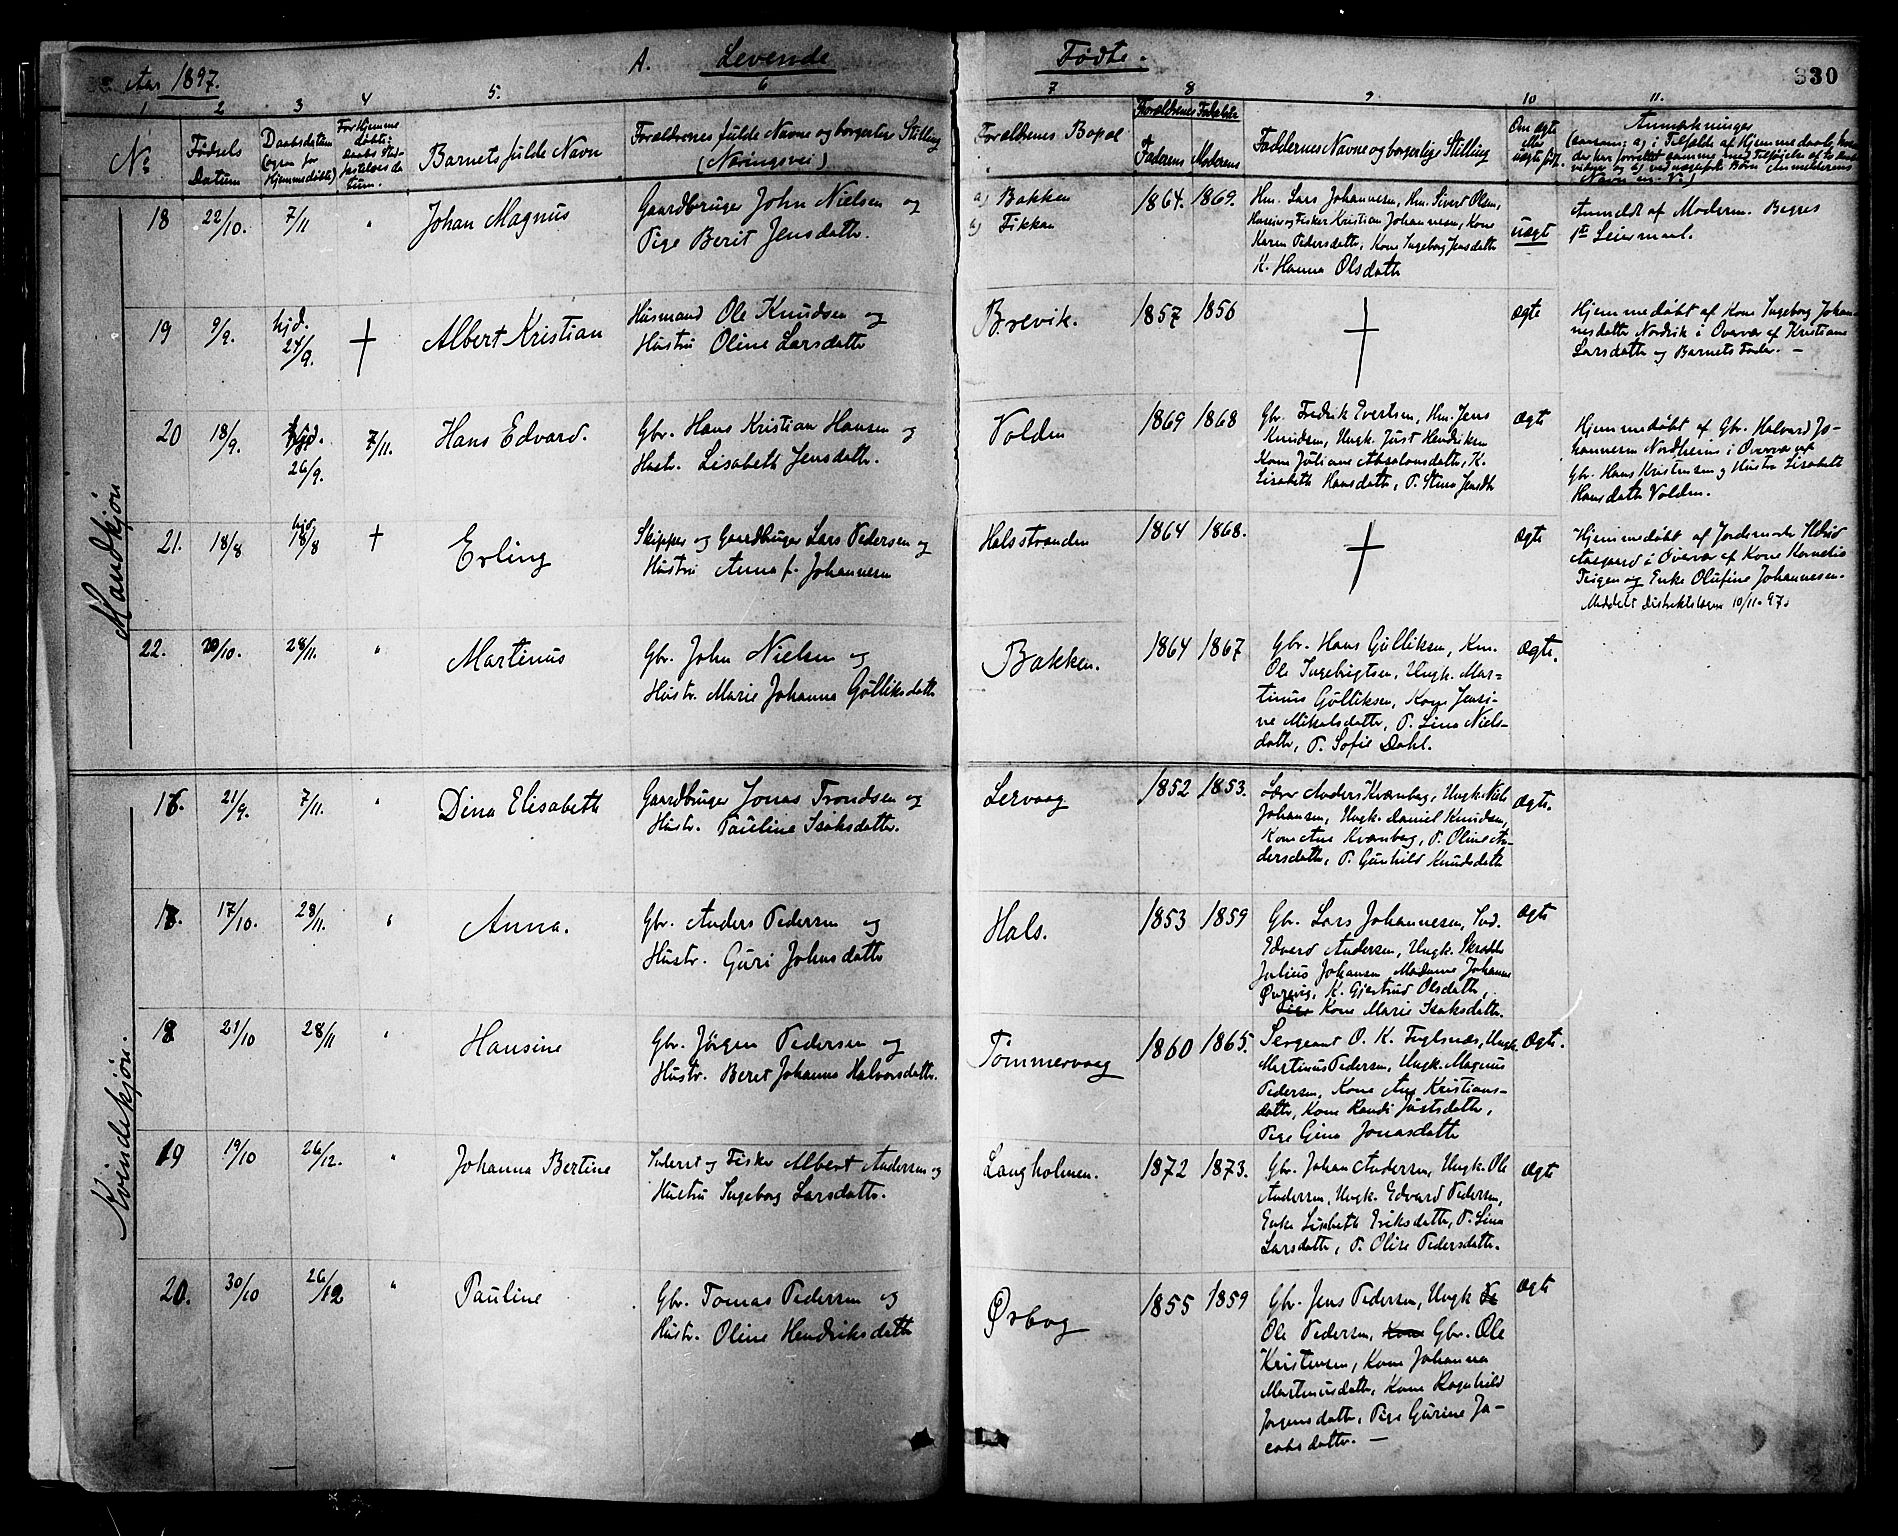 Aar 1897.
A. Levende Fødte.
330
1 2 3 4 5. 6 7 8 9 10 11.
No
Fødsels Datum
Daabsdatum (ogsaa for Hjemmedøbte)
For Hjemmedøbte: Daabs Stadfæstelsesdatum.
Barnets fulde Navn
Forældrenes fulde Navne og borgerlige Stilling
(Næringsvei)
Forældrenes Bopæl
Forældrenes Fødselsår
Faderens Moderens
Faddernes Navne og borgerlige Stilling
Om ægte eller uægte født.
Anmærkninger
Mandkjøn
18 22/10. 7/11 " Johan Magnus
Gaardbruger John Nielsen og
Pige Berit Jensdatter.
a) Bakken
b) Fikkan
1864. 1869.
Hm. Lars Johannesen, Hm. Sivert Olsen,
Husein og Fisker Kristian Johannesen, Kone
Karen Pedersdatter, Kone Ingeborg Jensdatter
K. Hanna Olsdatter
uægt
Anmeldt af Moderen. Begges
1ste Leiermaal.
19 9/9. hjd. 24/9. † Albert Kristian
Husmand Ole Knudsen og
Hustru Oline Larsdatter
Brevik. 1857 1856 † ægte
Hjemmedøbt af Kone Ingeborg Johan-
nesdatter Nordvik i Overvær af Kristiane
Larsdatter og Barnets Fader. —
20 18/9. hjd. 26/9. 7/11. Hans Edvard.
Gbr. Hans Kristian Hansen og
Hustr. Lisabeth Jensdatter.
Volden 1869 1868
Gbr. Fredrik Evertsen, Hm. Jens
Knudsen, Ungk. Just Hendriksen
Kone Juliane Absalonsdatter, K.
Lisabeth Hansdatter, P. Stina Jensdtr
Ægte
Hjemmedøbt af Gbr. Halvard Jo-
hannesen Nordheim i Overvær af
Gbr. Hans Kristensen og Hustru Lisabeth
Hansdatter Volden.
21. 18/8 hjd. 18/8 † Erling
Skipper og Gaardbruger Lars Pedersen og
Hustru Anna f. Johannesen
Halsstranden 1864 1868. † Ægte
Hjemmedøbt af Jordemoder
Aasgaard i Overvær af Kone Kornelia
Teigen og Enke Olufine Johannesen.
Meddelt Distriktslægen 10/11-97.
22. 20/10. 28/11. " Martinus
Gbr. John Nielsen og
Hustr. Marie Johanna Gulliksdatter
Bakken. 1864 1867
Gbr. Hans Gulliksen, Km.
Ole Ingebrigtsen, Ungk. Mar-
tinus Gulliksen, Kone Jensi-
ne Mikalsdatter, P. Lina Niels-
datter, P. Sofie Dahl.
Ægte.
Kvindekjøn.
16. 21/9. 7/11. " Dina Elisabeth
Gaardbruger Jonas Trondsen og
Hustr. Pauline Isaksdatter.
Lervaag 1852 1853.
Lærer Anders Kvænbag, Ungk. Niels
Johansen, Ungk. Daniel Knudsen,
Kone Ane Kvænbag, P. Oline An-
dersdatter, P. Gunhild Knudsdatter
Ægte.
17. 17/10. 28/11. " Anna.
Gbr. Anders Pedersen og
Hustr. Guri Johnsdatter
Hals. 1853 1859
Gbr. Lars Johannesen, Ind.
Edvard Andersen, Ungk. Skrædder
Julius Johansen Madame Johanna
Øvrevig, K. Gjertrud Olsdatter,
Pige Kone Marie Isaksdatter.
Ægte
18 21/10 28/11 " Hansine
Gbr. Jørgen Pedersen og
Hustr. Beret Johanna Halvorsdatter.
Tømmervaag 1860 1865.
Sergeant O. K. Fuglsnæs, Ungk.
Martinus Pedersen, Ungk. Magnus
Pedersen, Kone Ane Kristians-
datter, Kone Randi Justsdatter,
Pige Gina Jonasdatter
Ægte.
19 19/10 26/12. " Johanna Bertine
Inderst og Fisker Albert Andersen og
Hustru Ingeborg Larsdatter.
Langholmen. 1872 1873.
Gbr. Johan Andersen, Ungk. Ole
Andersen, Ungk. Edvard Pedersen,
Enke Lisbeth Eriksdatter, P. Lina
Larsdatter, P. Oline Pedersdatter.
Ægte
20. 30/10 26/12 " Pauline
Gbr. Tomas Pedersen og
Hustr. Oline Hendriksdatter
Ørbog 1855 1859
Gbr. Jens Pedersen, Ungk
Ole Pedersen, Kone Gbr. Ole
Kristensen, Kone Johanna
Martinusdatter, Kone Ragnhild
Jørgensdatter, Pige Gurine Ja-
cobsdatter. —
Ægte